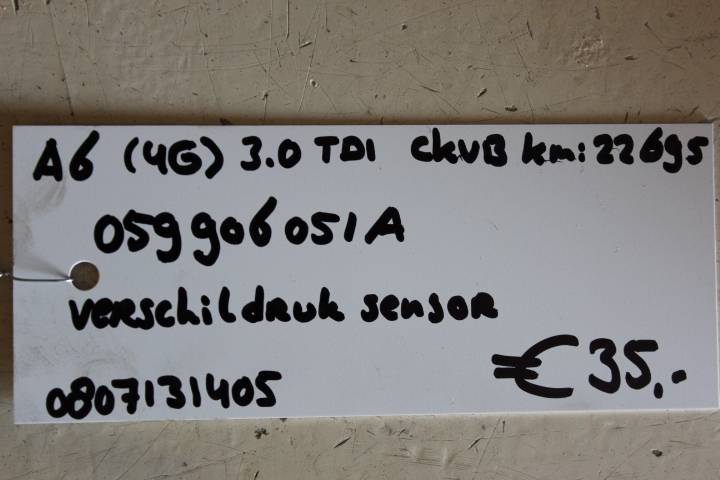 A6 (4G) 3.0 TDI CKVB km: 22695
059906051A
verschildruk sensor
0807131405
€35,-